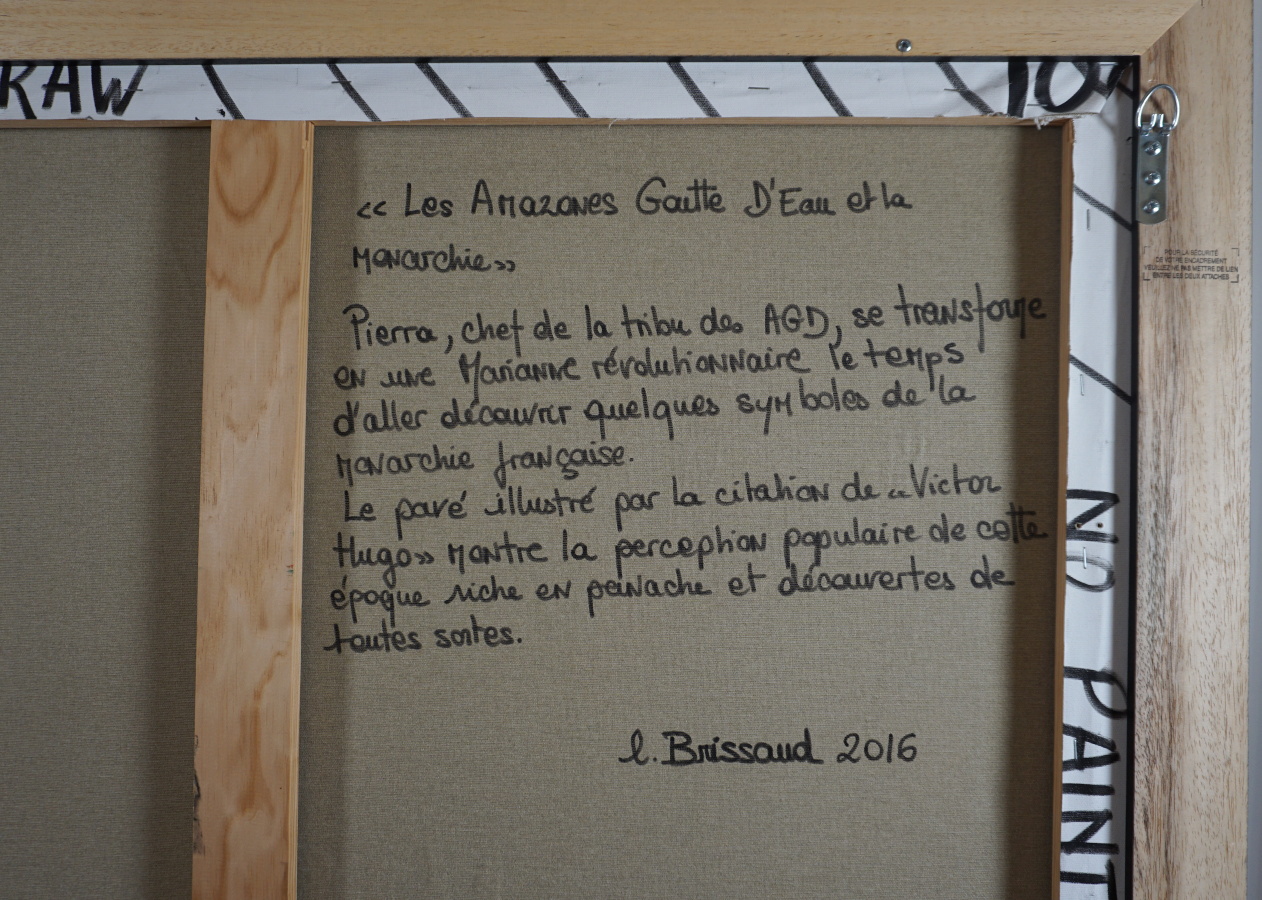 RAW
« Les Amazones Goutte D'Eau et la
monarchie »
Pierra, chef de la tribu des AGD, se transforme
en une Marianne révolutionnaire le temps
d'aller découvrir quelques symboles de la
monarchie française.
Le pavé illustré par la citation de « Victor
Hugo » montre la perception populaire de cette
époque riche en panache et découvertes de
toutes sortes.
l. Brissaud 2016
POUR LA SÉCURITÉ
DE VOTRE ENCADREMENT
VEUILLEZ NE PAS METTRE DE LIEN
ENTRE LES DEUX ATTACHES
NO PAINT